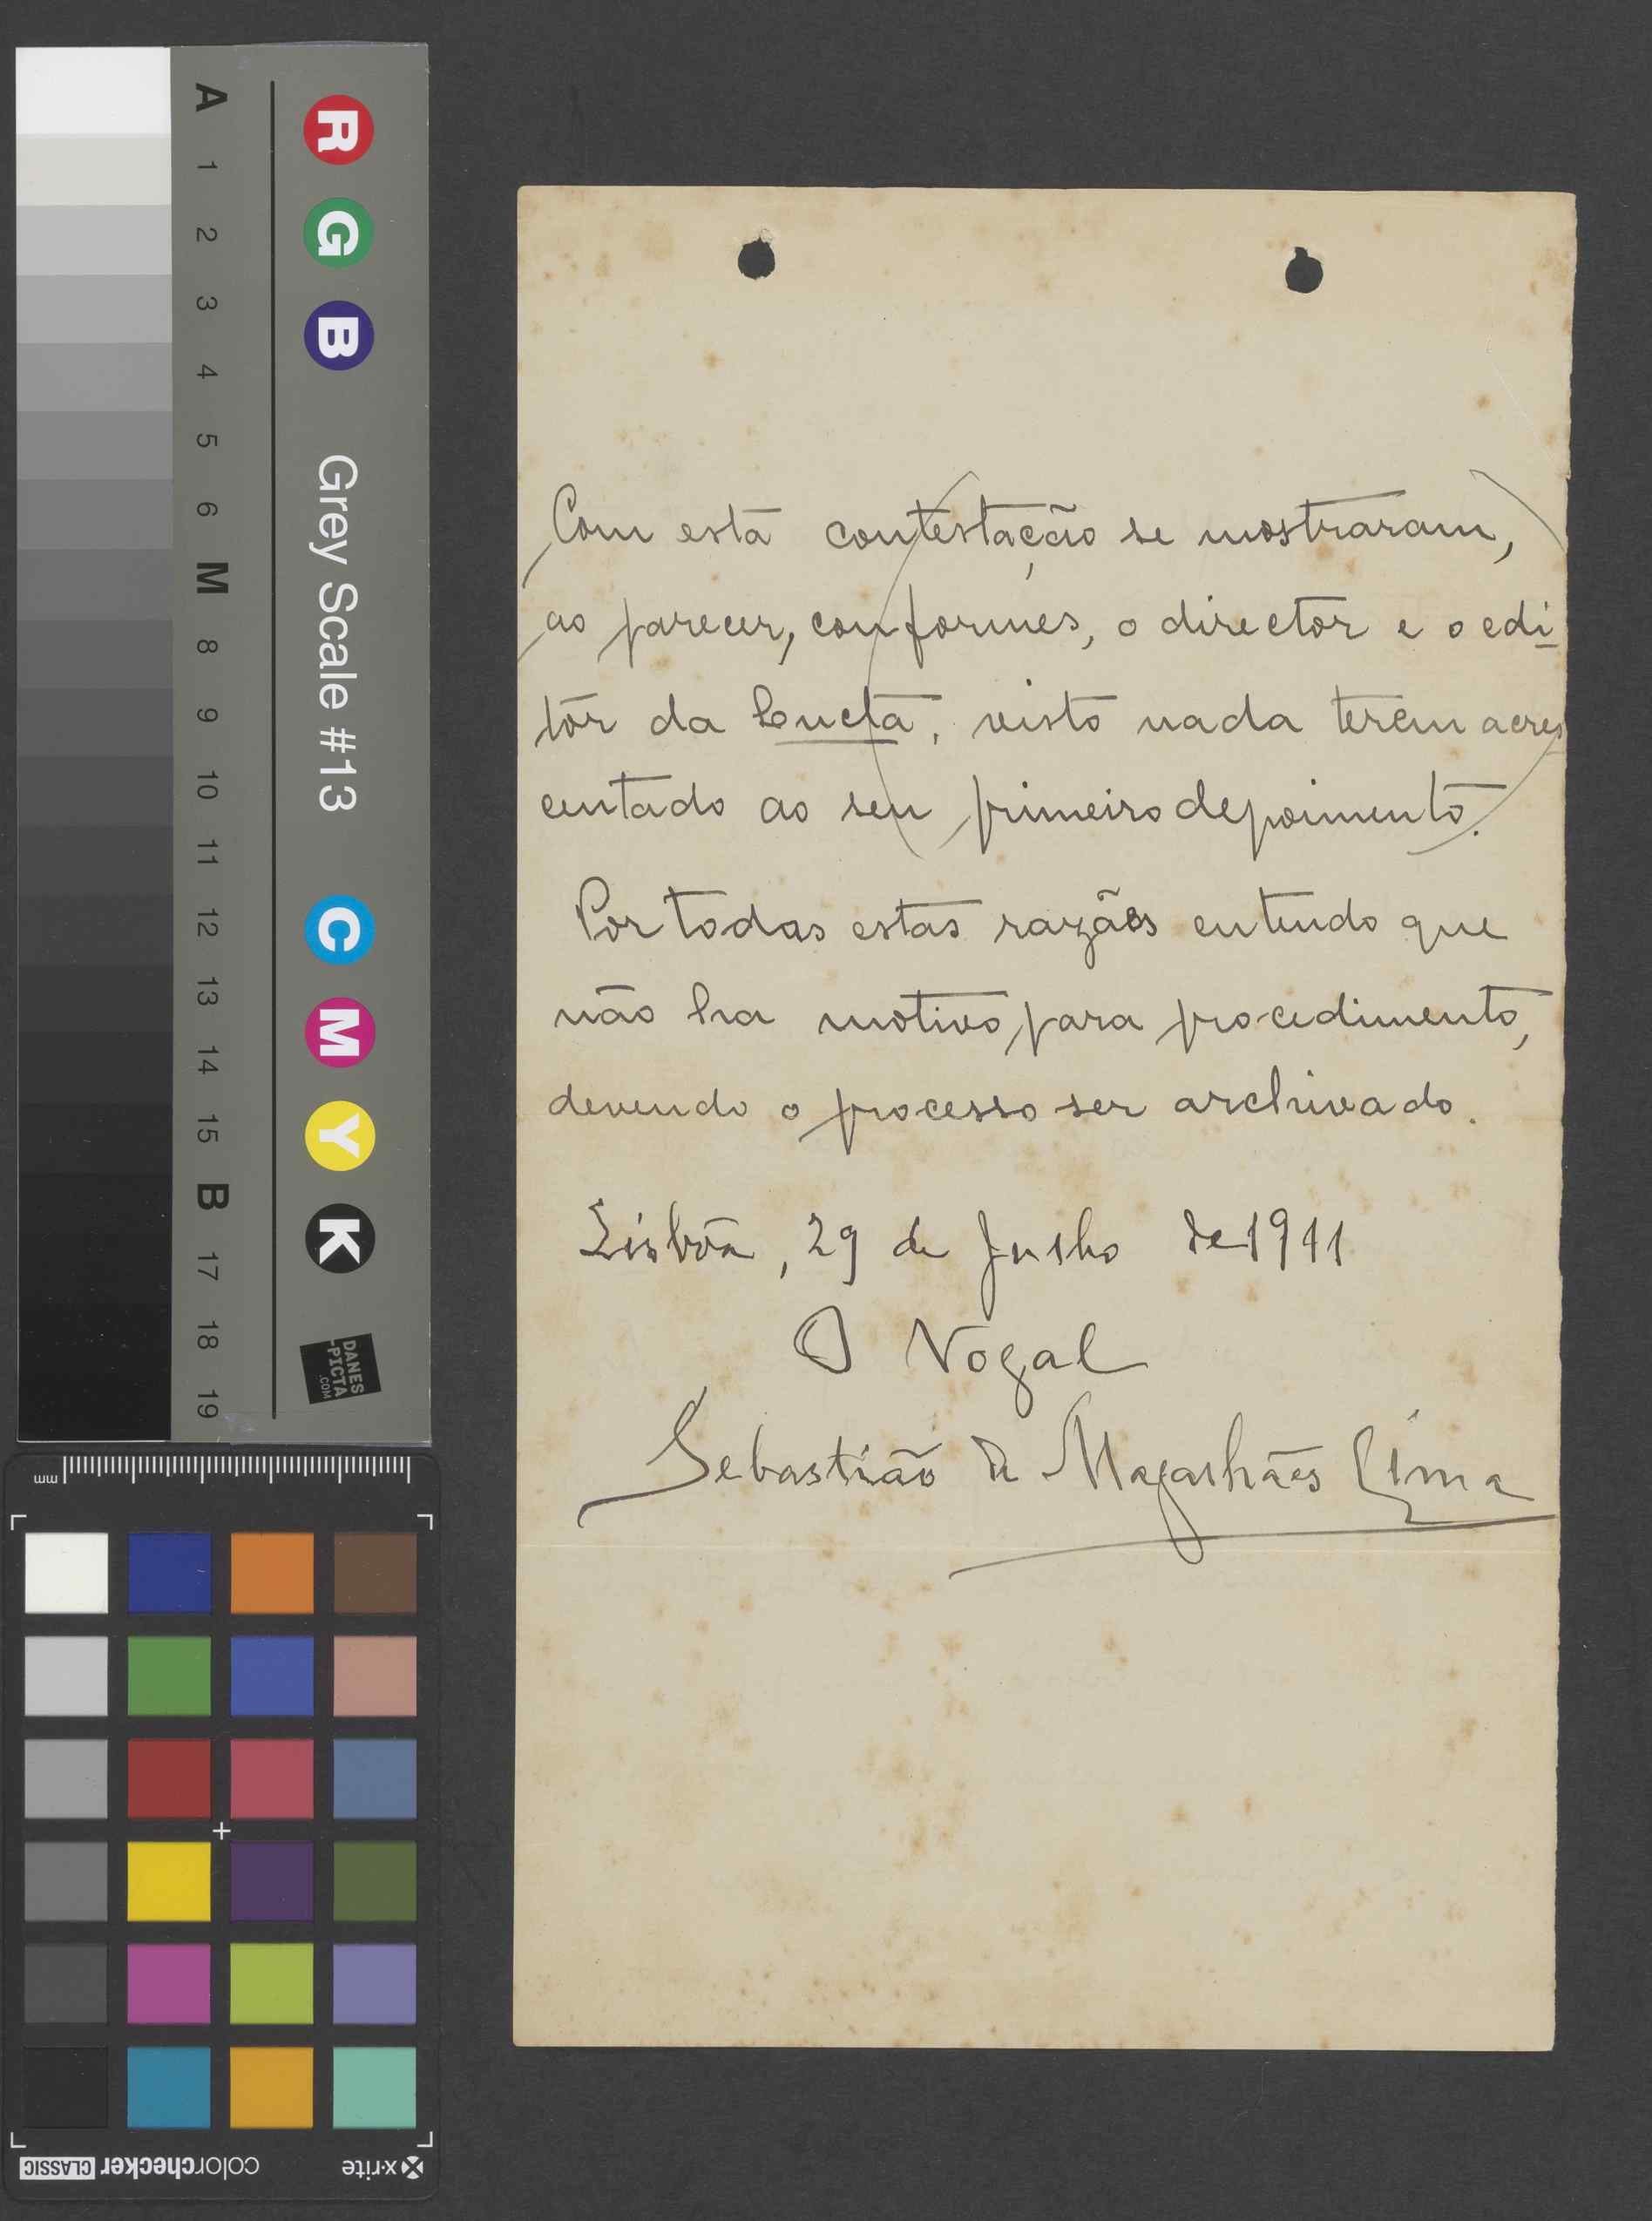 A 1 2 3 4 5 6 M 8 9 10 11 12 13 14 15 B 17 18 19
R G B Grey Scale #13 C M Y K
DANES
-PICTA
.COM
mm
colorchecker CLASSIC
x-rite
Com esta contestação se mostraram,
ao parecer, conformes, o director e o edi
tor da Lucta, visto nada terem acres
centado ao seu primeiro depoimento.
Por todas estas razões entendo que
não ha motivo para procedimento,
devendo o processo ser archivado.
Lisboa, 29 de Julho de 1911
O Vogal
Sebastião de Magalhães Lima